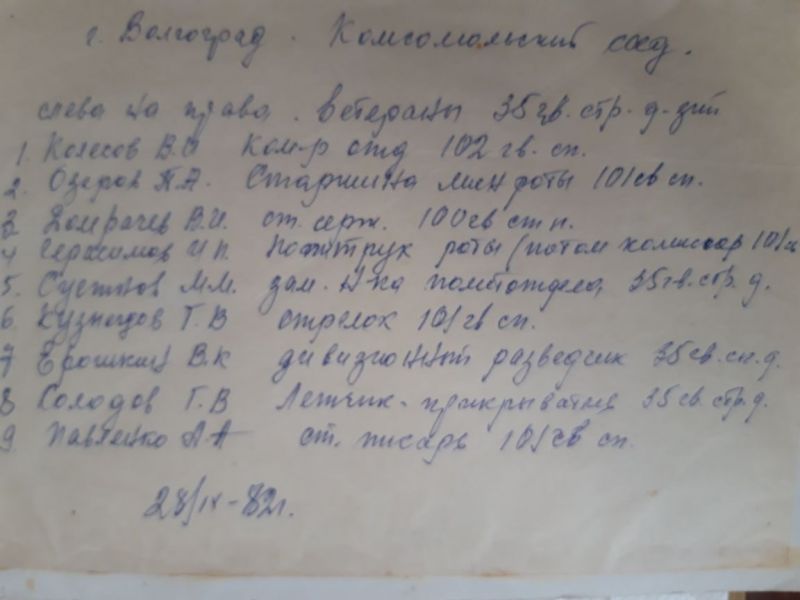 г. Волгоград. Комсомольский сад.
слева на права. Ветераны 35 гв. стр. д-зии
1. Колесов В.И Ком-р отд 102 гв. сп.
2. Озеров П.А. Старшина мин роты 101 гв сп.
3 Домрачев В.И. ст. серж. 100 гв стп.
4 Герасимов И П. Политрук роты (потом комиссар 101
5. Суетнов М.М. зам. н-ка политотдела, 35 гв. стр. д.
6 Кузнецов Г. В стрелок 101 гв сп.
7 Ерошкин В.К дивизионный разведчик 35 гв. сп. д.
8 Солодов Г. В Летчик - прикрыватня 35 гв. стр. д.
9 Павленко А А ст. писарь 101 гв сп.
28/IX-82г.